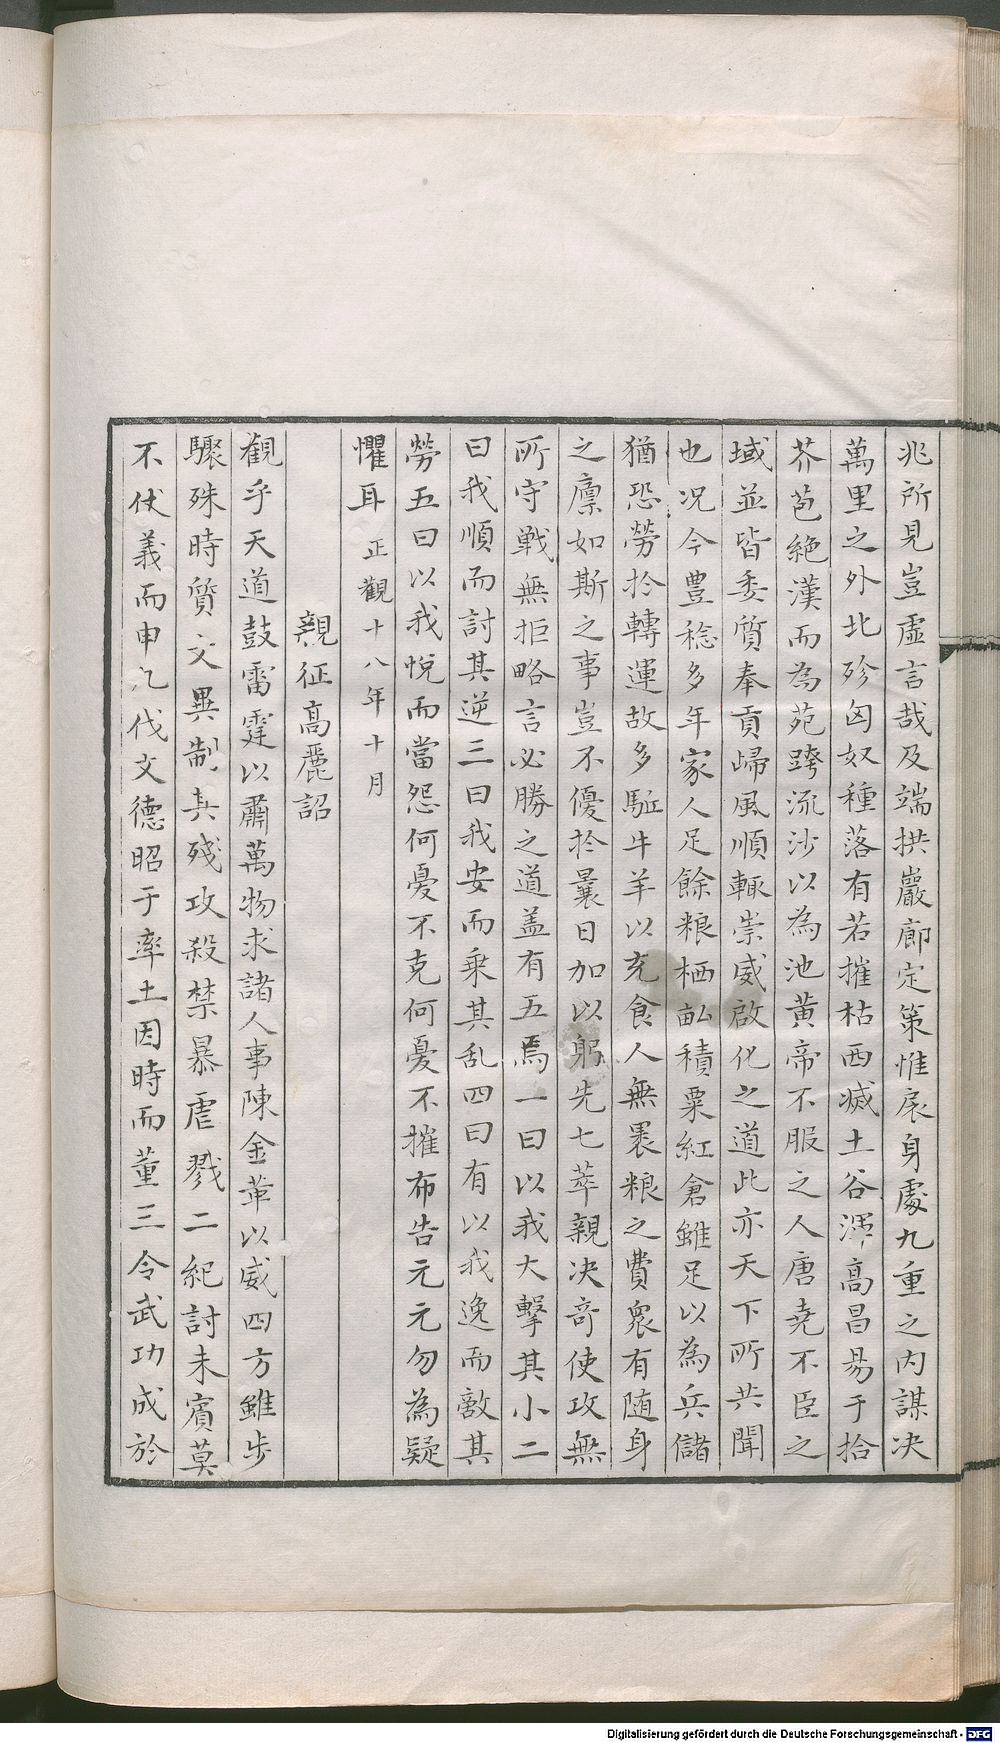 兆所見豈虛言哉及端拱巖廊定策惟扆身處九重之內謀决
萬里之外北殄匈奴種落有若摧枯西滅土谷渾高昌易于拾
芥苞絶漢而為苑跨流沙以為池黄帝不服之人唐堯不臣之
域並皆委質奉貢歸風順軏崇威啟化之道此亦天下所共聞
也况今豊稔多年家人足餘粮栖畆積粟紅倉雖足以為兵儲
猶恐勞扵轉運故多駈牛羊以充食人無褁粮之費衆有随身
之廪如斯之事豈不優扵曩日加以躬先七萃親决竒使攻無
所守戦無拒略言必勝之道盖有五焉一曰以我大擊其小二
曰我順而討其逆三曰我安而乗其乱四曰有以我逸而敵其
勞五曰以我悅而當怨何憂不克何憂不摧布告元元勿為疑
懼耳 正觀十八年十月
親征高麗詔
觀乎天道鼓雷霆以肅萬物求諸人事陳金革以威四方雖步
驟殊時質文異制其殘攻殺禁暴虐戮二紀討未賓莫
不伏義而申九伐文德昭于率土因時而董三令武功成於
Digitalisierung gefördert durch die Deutsche Forschungsgemeinschaft - DFG